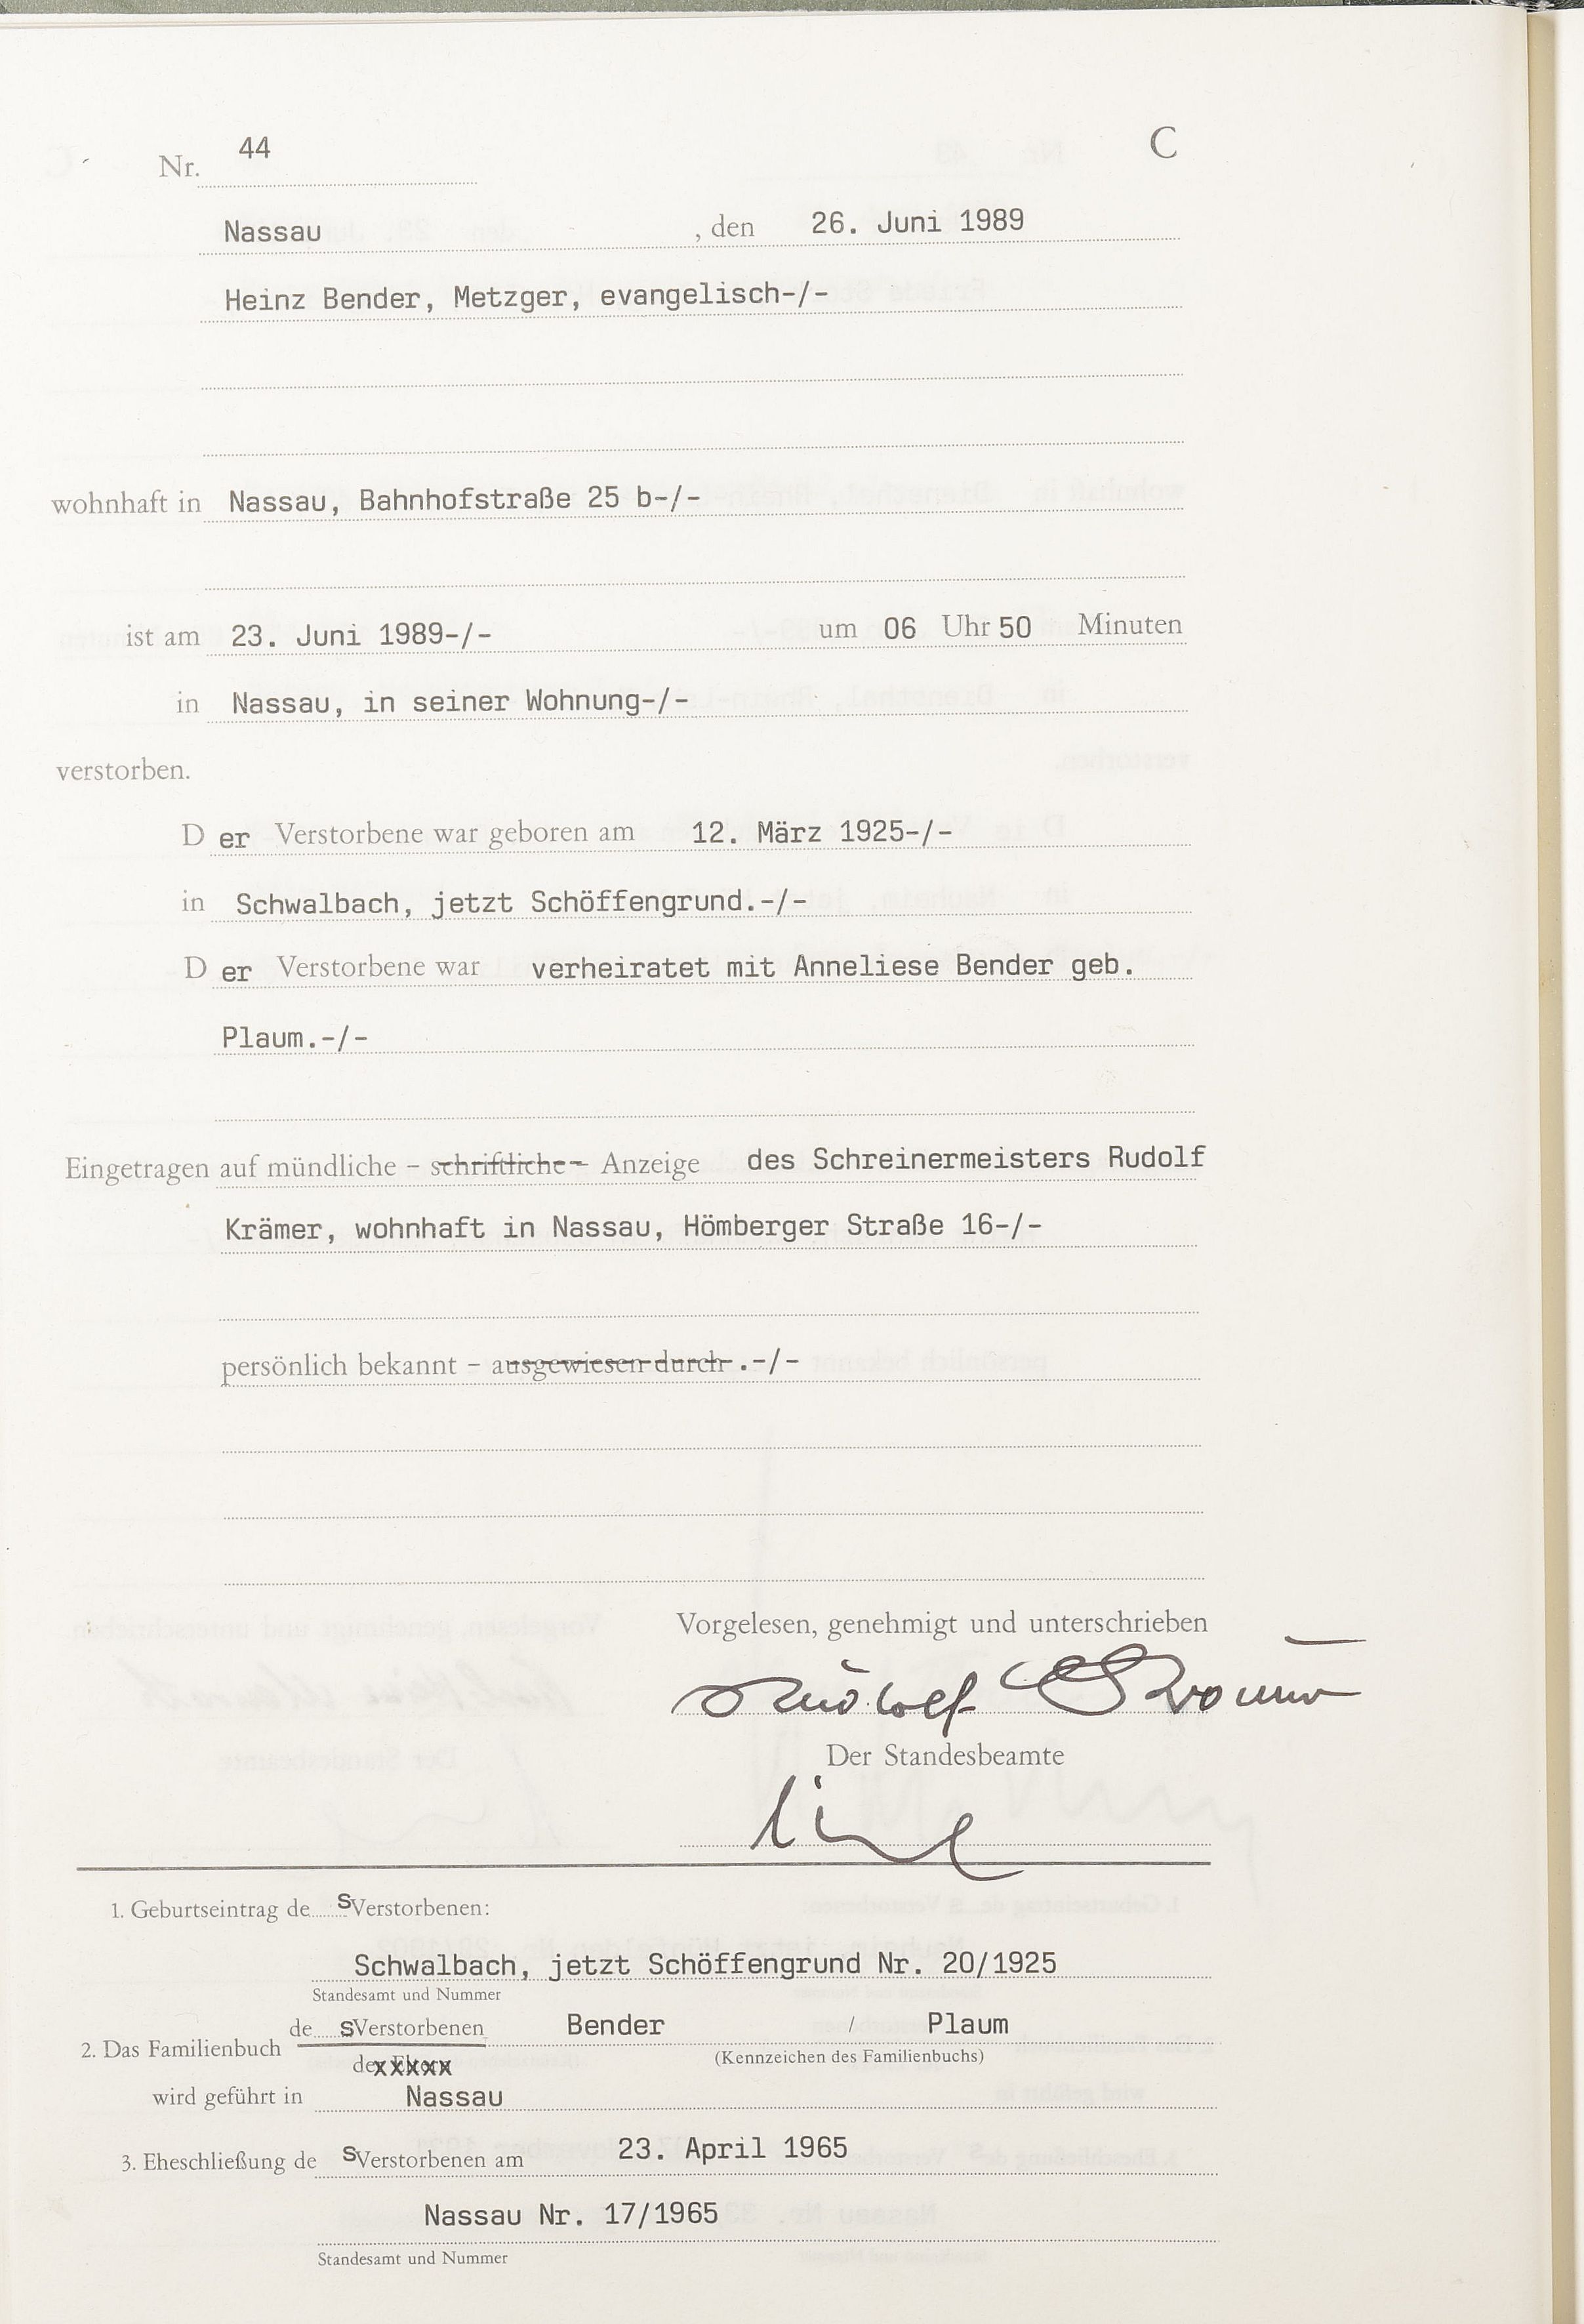 Nr. 44 C
Nassau , den 26. Juni 1989
Heinz Bender, Metzger, evangelisch-/-
wohnhaft in Nassau, Bahnhofstraße 25 b-/-
ist am 23. Juni 1989-/- um 06 Uhr 50 Minuten
in Nassau, in seiner Wohnung-/-
verstorben.
D er Verstorbene war geboren am 12. März 1925-/-
in Schwalbach, jetzt Schöffengrund.-/-
D er Verstorbene war verheiratet mit Anneliese Bender geb.
Plaum.-/-
Eingetragen auf mündliche – schriftliche – Anzeige des Schreinermeisters Rudolf
Krämer, wohnhaft in Nassau, Hömberger Straße 16-/-
persönlich bekannt – ausgewiesen durch .-/-
Vorgelesen, genehmigt und unterschrieben
Rudolf Krämer
Der Standesbeamte
1. Geburtseintrag de s Verstorbenen:
Schwalbach, jetzt Schöffengrund Nr. 20/1925
Standesamt und Nummer
de s Verstorbenen Bender / Plaum
2. Das Familienbuch
der Eltern (Kennzeichen des Familienbuchs)
wird geführt in Nassau
3. Eheschließung de s Verstorbenen am 23. April 1965
Nassau Nr. 17/1965
Standesamt und Nummer